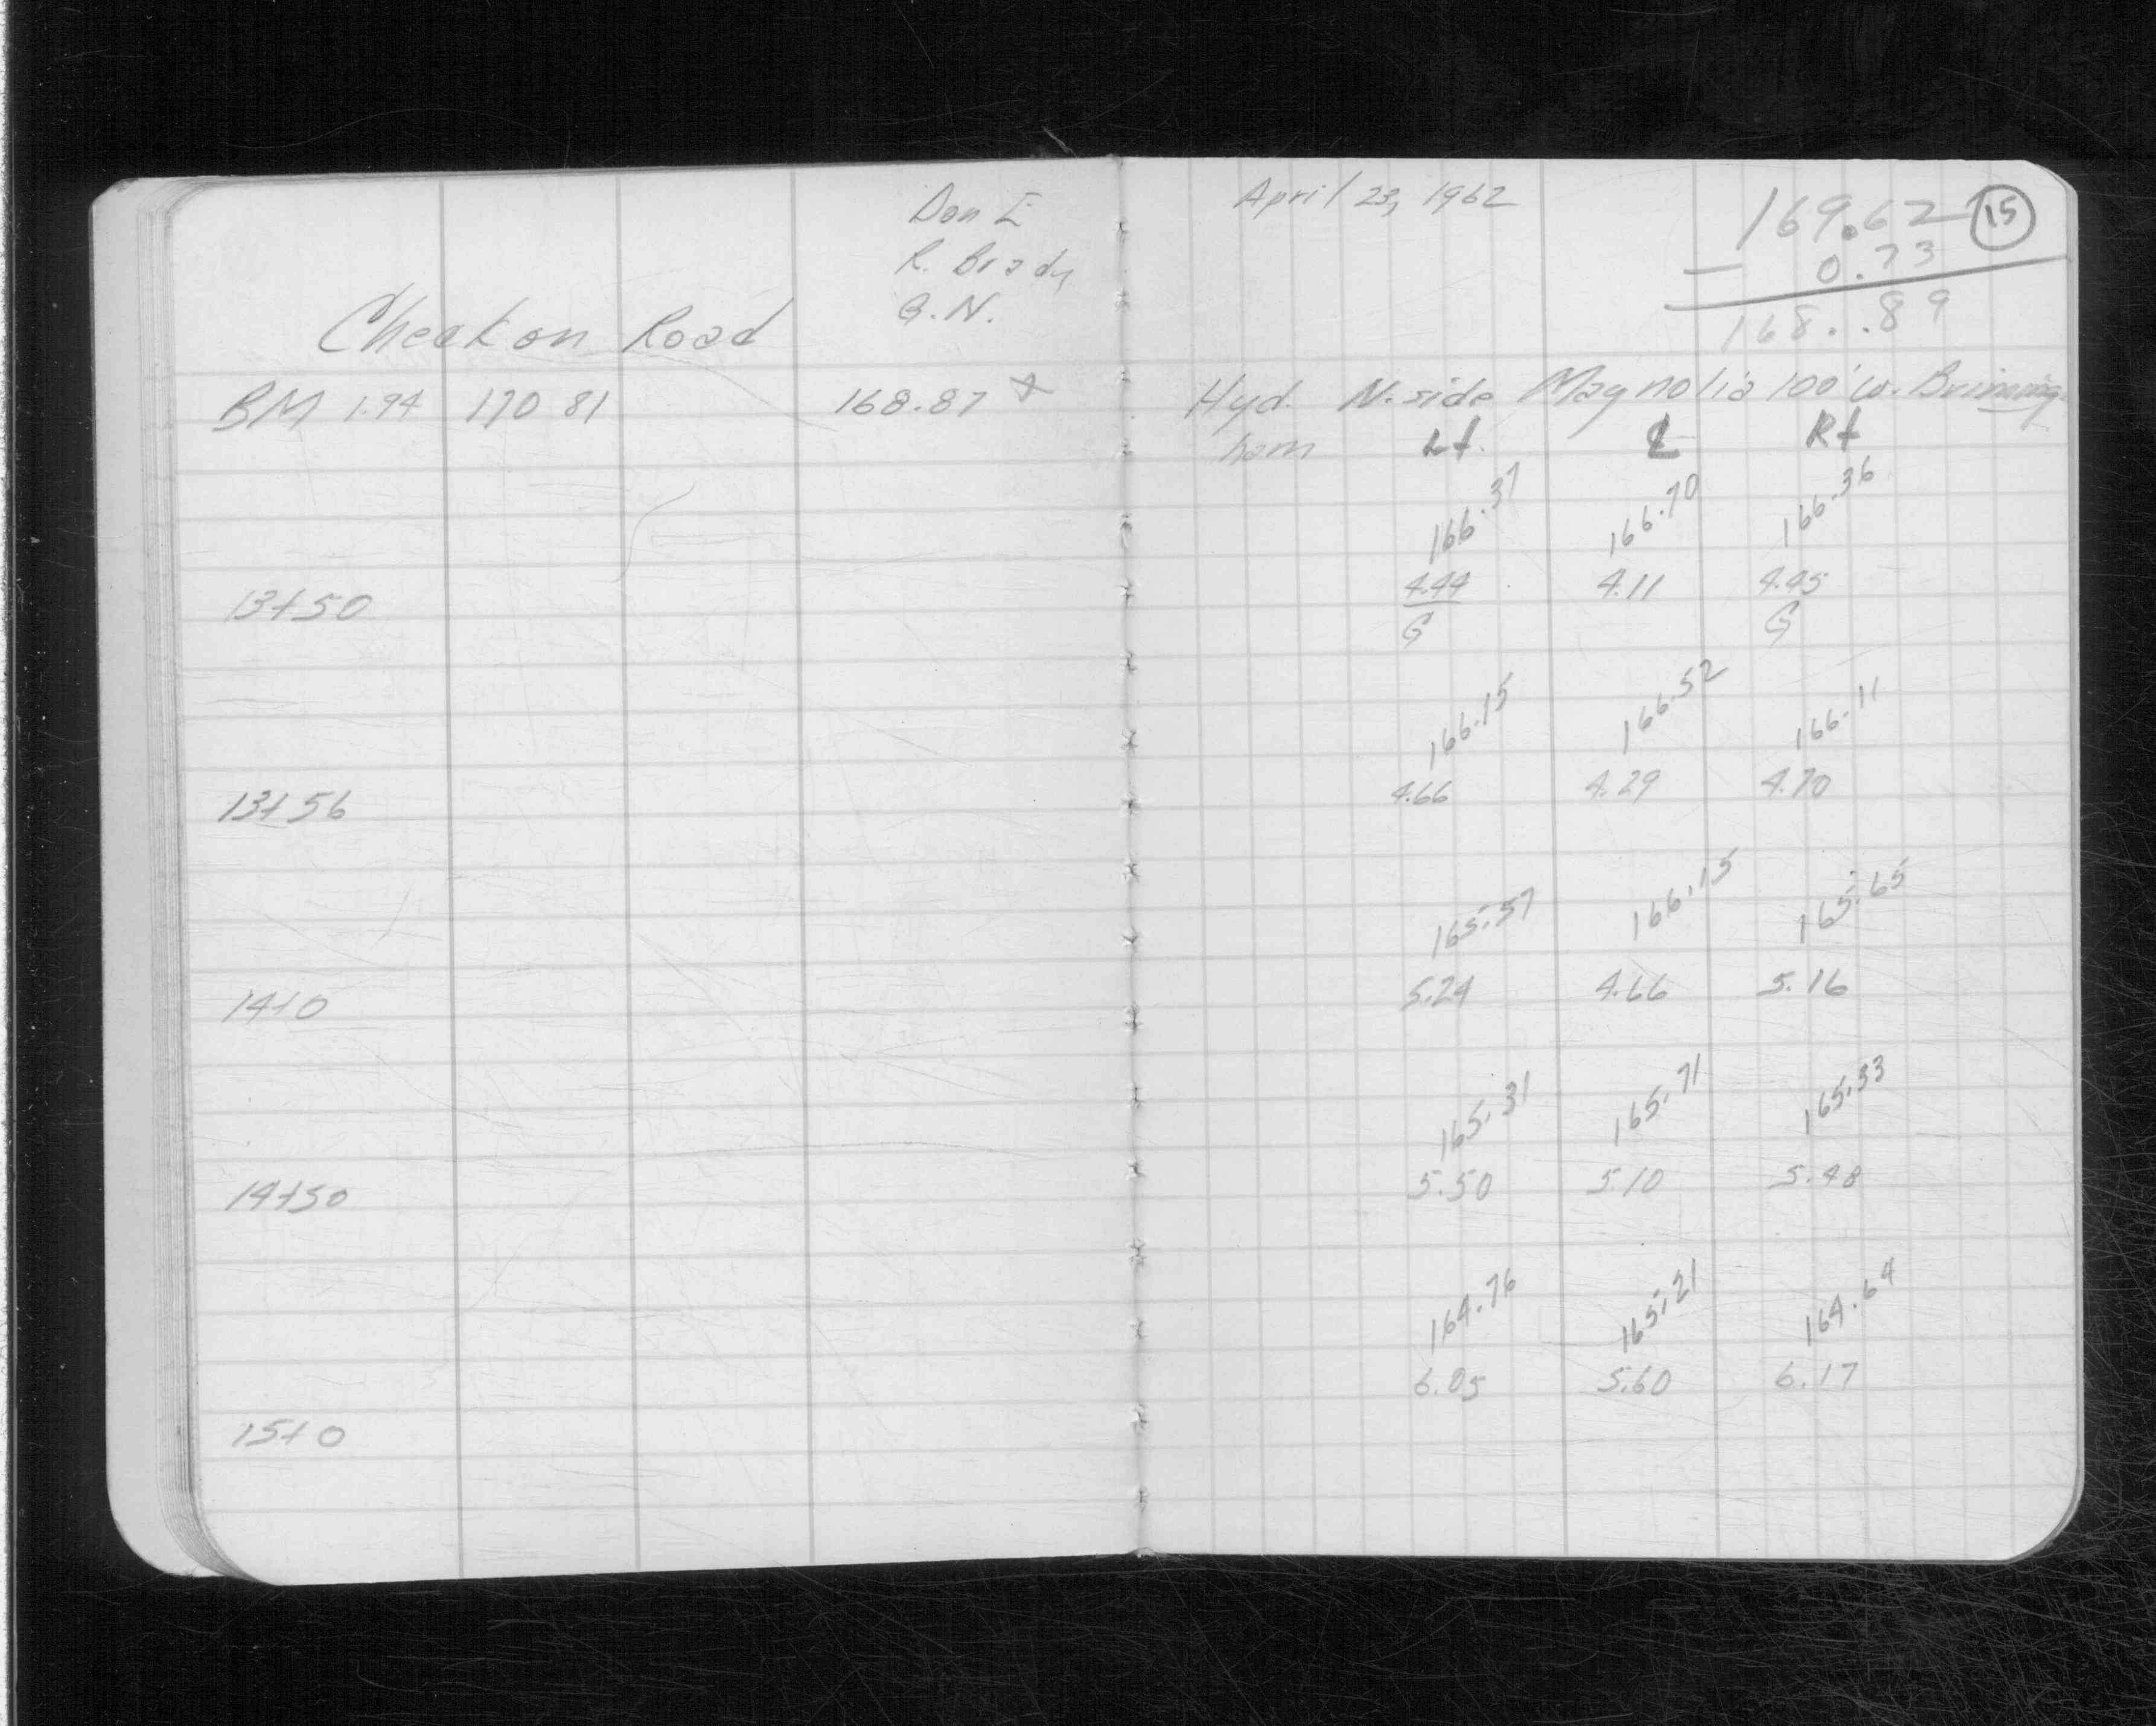 Don E
R. Brady
G.N.
Cheak on Road
BM 1.94 170 81 168.87
13+50
13+56
14+0
14+50
15+0
April 23, 1962
169.62 15
- 0.73
168..89
Hyd. N. side Magnolia 100' W.
Lt. ℄ Rt
166.37 166.70 166.36
4.44 4.11 4.45
G G
166.15 166.52 166.11
4.66 4.29 4.70
165.57 166.15 165.65
5.24 4.66 5.16
165.31 165.71 165.33
5.50 5.10 5.48
164.76 165.21 164.64
6.05 5.60 6.17